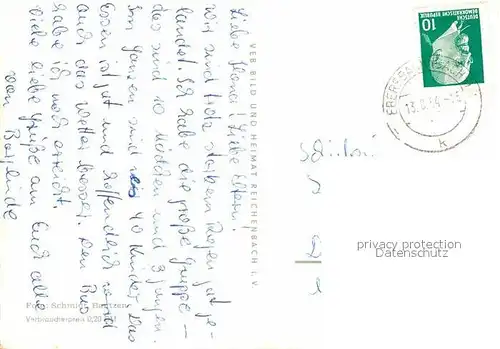 Liebe Ilona! Liebe Eltern.
Wir sind trotz starkem Regen gut ge-
landet. Ich habe die große Gruppe –
das sind 10 Mädchen und 3 Jungen.
Im Ganzen sind es 40 Kinder. Das
Essen ist gut und hoffentlich wird
auch das Wetter besser. Den Bus
habe ich noch erreicht.
Viele liebe Grüße an Euch alle
von
VEB BILD UND HEIMAT REICHENBACH i. V.
Foto: Schmidt, Bautzen
Verbraucherpreis 0,20
10
DEUTSCHE
DEMOKRATISCHE REPUBLIK
k
privacy protection
Datenschutz